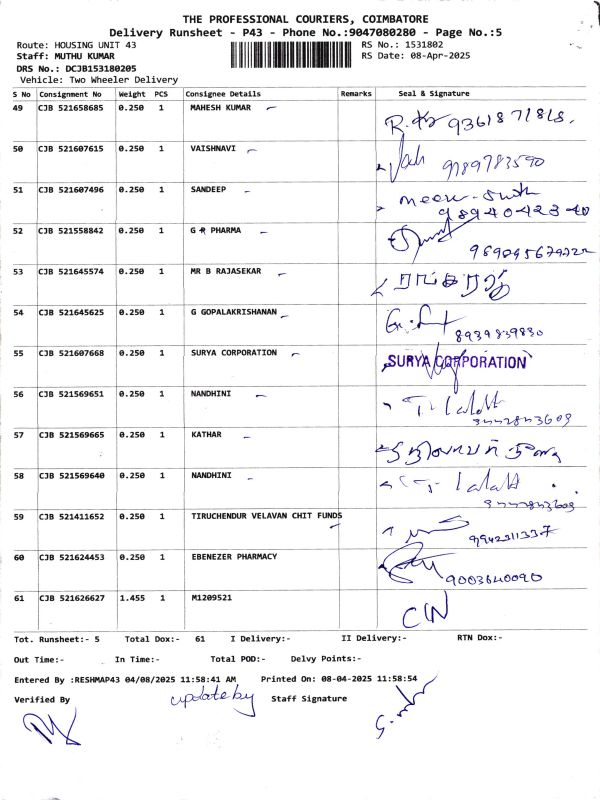 THE PROFESSIONAL COURIERS, COIMBATORE
Delivery Runsheet - P43 - Phone No.:9047080280 - Page No.:5
Route: HOUSING UNIT 43 RS No.: 1531802
Staff: MUTHU KUMAR RS Date: 08-Apr-2025
DRS No.: DCJB153180205
Vehicle: Two Wheeler Delivery
S No Consignment No Weight PCS Consignee Details Remarks Seal & Signature
49 CJB 521658685 0.250 1 MAHESH KUMAR
50 CJB 521607615 0.250 1 VAISHNAVI 9789783590
51 CJB 521607496 0.250 1 SANDEEP
9894042340
52 CJB 521558842 0.250 1 G R PHARMA
53 CJB 521645574 0.250 1 MR B RAJASEKAR
54 CJB 521645625 0.250 1 G GOPALAKRISHANAN
8939839830
55 CJB 521607668 0.250 1 SURYA CORPORATION SURYA CORPORATION
56 CJB 521569651 0.250 1 NANDHINI
57 CJB 521569665 0.250 1 KATHAR
58 CJB 521569640 0.250 1 NANDHINI
59 CJB 521411652 0.250 1 TIRUCHENDUR VELAVAN CHIT FUNDS
9942311337
60 CJB 521624453 0.250 1 EBENEZER PHARMACY
9003640090
61 CJB 521626627 1.455 1 M1209521
Tot. Runsheet:- 5 Total Dox:- 61 I Delivery:- II Delivery:- RTN Dox:-
Out Time:- In Time:- Total POD:- Delvy Points:-
Entered By :RESHMAP43 04/08/2025 11:58:41 AM Printed On: 08-04-2025 11:58:54
Verified By update by Staff Signature